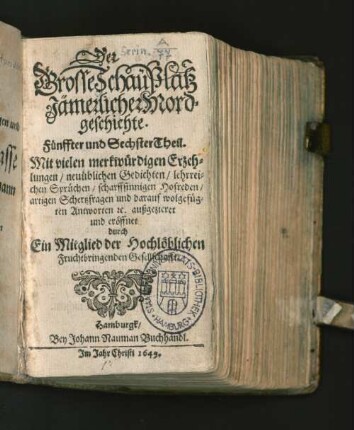 Der
Grosse SchauPlatz
Jämerlicher Mord-
geschichte.
Fünffter und Sechster Theil.
Mit vielen merkwürdigen Erzeh-
lungen / neuüblichen Gedichten / lehrrei-
chen Sprüchen / scharffsinnigen Hofreden /
artigen Schertzfragen und darauf wolgefüg-
ten Antworten ꝛc. außgezieret
und eröffnet
durch
Ein Mitglied der Hochlöblichen
Fruchtbringenden Gesellschafft.
STAATS-
BIBLIOTHEK
HAMBURG
Hamburgk /
Bey Johann Nauman Buchhändl.
Im Jahr Christi 1649.